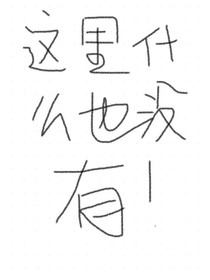 这里什
么也没
有！